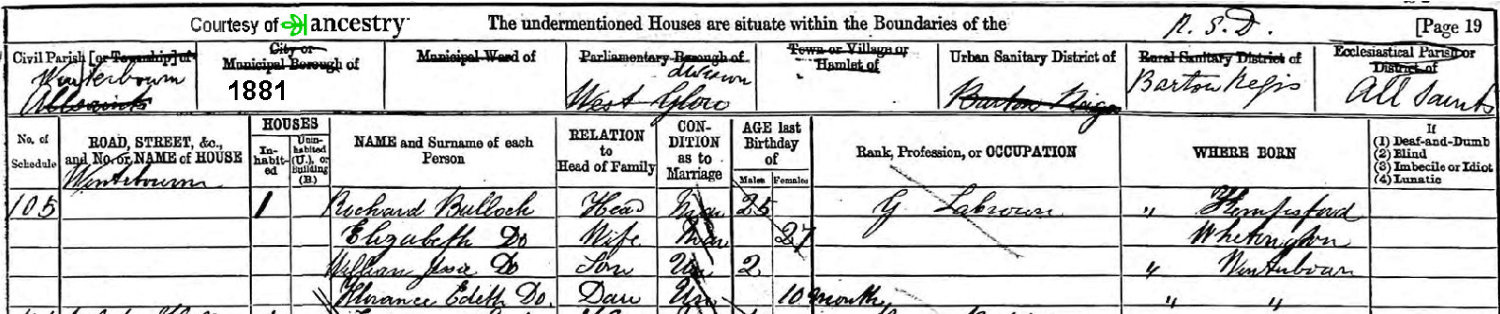 Courtesy of ancestry The undermentioned Houses are situate within the Boundaries of the R.S.D. [Page 19
Civil Parish [or Township] of City or Municipal Borough of Municipal Ward of Parliamentary Borough of Town or Village or Hamlet of Urban Sanitary District of Rural Sanitary District of Ecclesiastical Parish or District of
Winterbourn 1881 division Barton Regis
Allsaints West Glou Barton Regis All Saints
No. of Schedule ROAD, STREET, &c., and No. or NAME of HOUSE HOUSES In-habit-ed Unin-habited (U.), or Building (B.) NAME and Surname of each Person RELATION to Head of Family CON-DITION as to Marriage AGE last Birthday of Males Females Rank, Profession, or OCCUPATION WHERE BORN If (1) Deaf-and-Dumb (2) Blind (3) Imbecile or Idiot (4) Lunatic
Winterbourn
105 1 Richard Bullock Head Mar 25 G Labrour " Kempsford
Elizabeth Do Wife Mar 27 Whetington
William Jessie Do Son Un 2 " Winterbourn
Florance Edeth Do. Dau Un 10 month " "